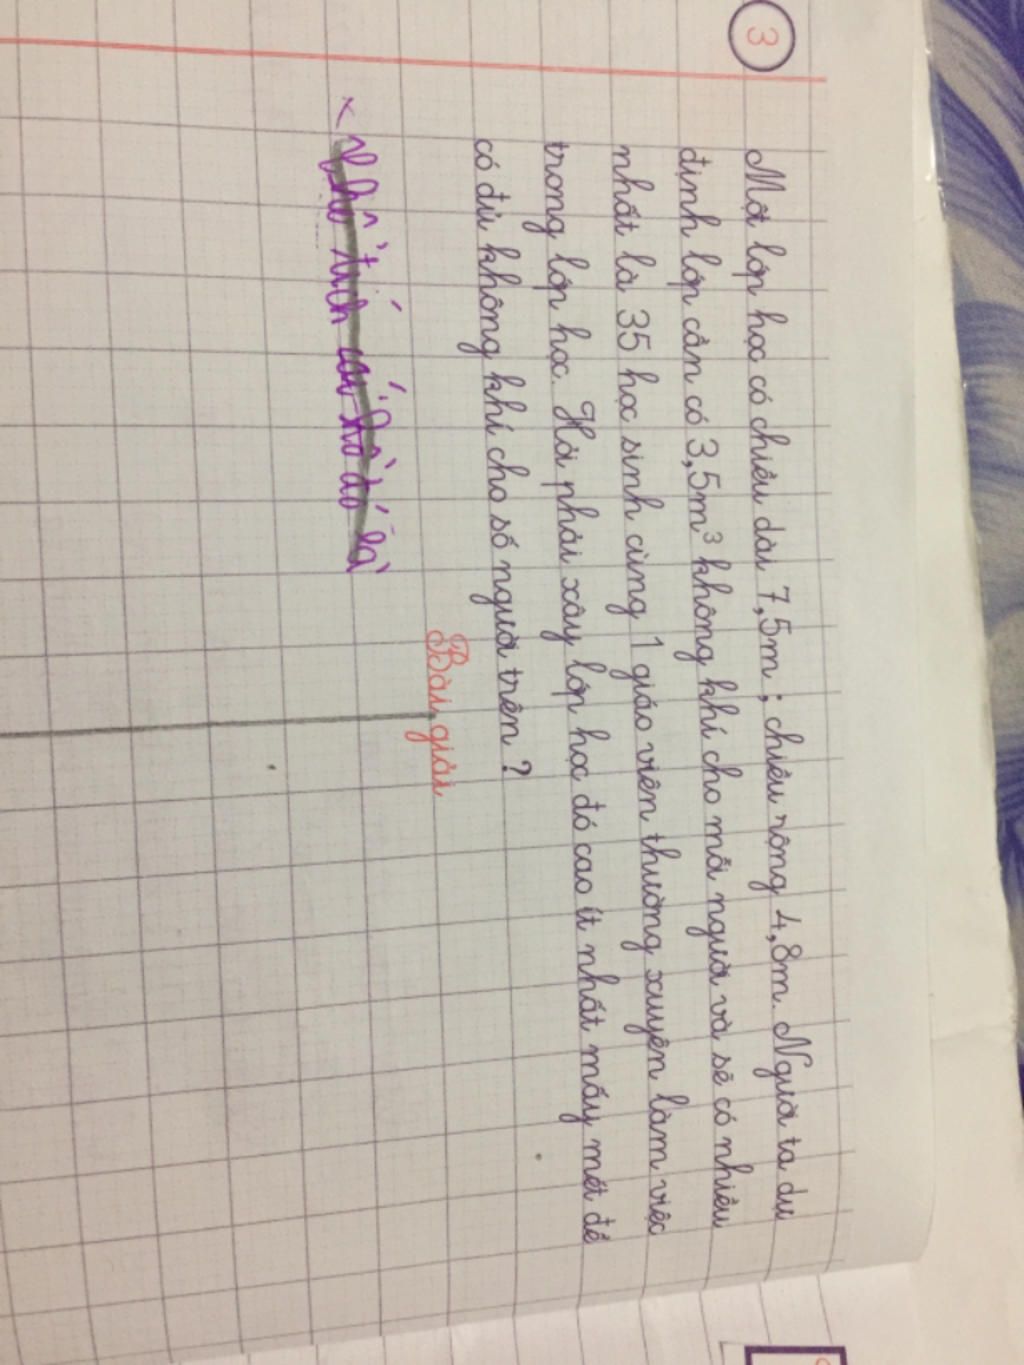 3
Một lớp học có chiều dài 7,5m ; chiều rộng 4,8m. Người ta dự
định lớp cần có 3,5m³ không khí cho mỗi người và sẽ có nhiều
nhất là 35 học sinh cùng 1 giáo viên thường xuyên làm việc
trong lớp học. Hỏi phải xây lớp học đó cao ít nhất mấy mét để
có đủ không khí cho số người trên ?
Bài giải